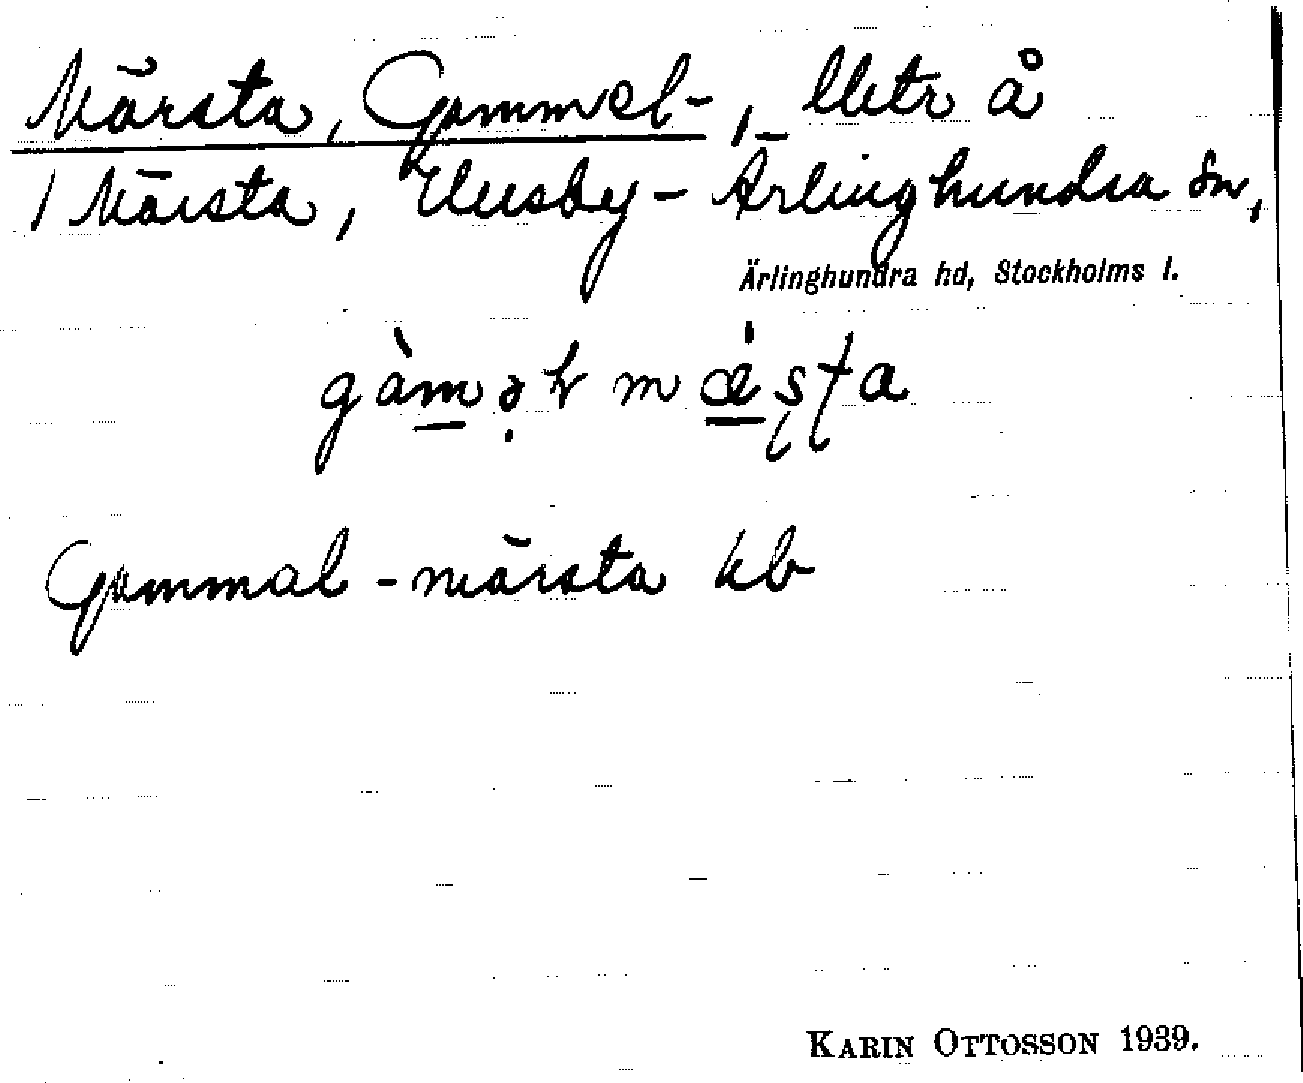 Märsta, Gammel-, lletr å
1 Märsta, Husby-Ärlinghundra sn,
Ärlinghundra hd, Stockholms l.
gàmǝl mæ̀ṣṭa
Gammal-märsta kb
KARIN OTTOSSON 1939.